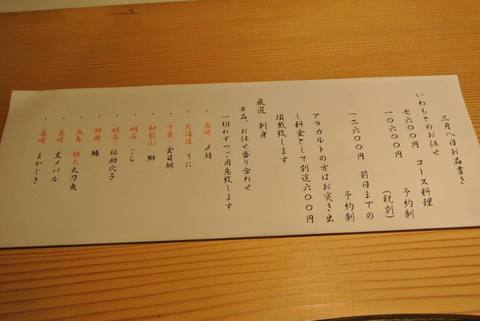 三月八日お品書き
いわもとのお任せ コース料理
七六〇〇円 予約制
一〇六〇〇円 (税別)
一二六〇〇円 前日までの予約制
アラカルトの方はお突き出し料金として別途六〇〇円
頂戴致します
厳選 刺身
単品、お任せ盛り合わせ
一切れずつご用意致します
・長崎 〆鯖
・北海道 うに
・千葉 金目鯛
・和歌山
・明石 こち
・明石 伝助穴子
・静岡 鰆
・五島 特大太刀魚
・長崎 黒メバル
・長崎 まかじき